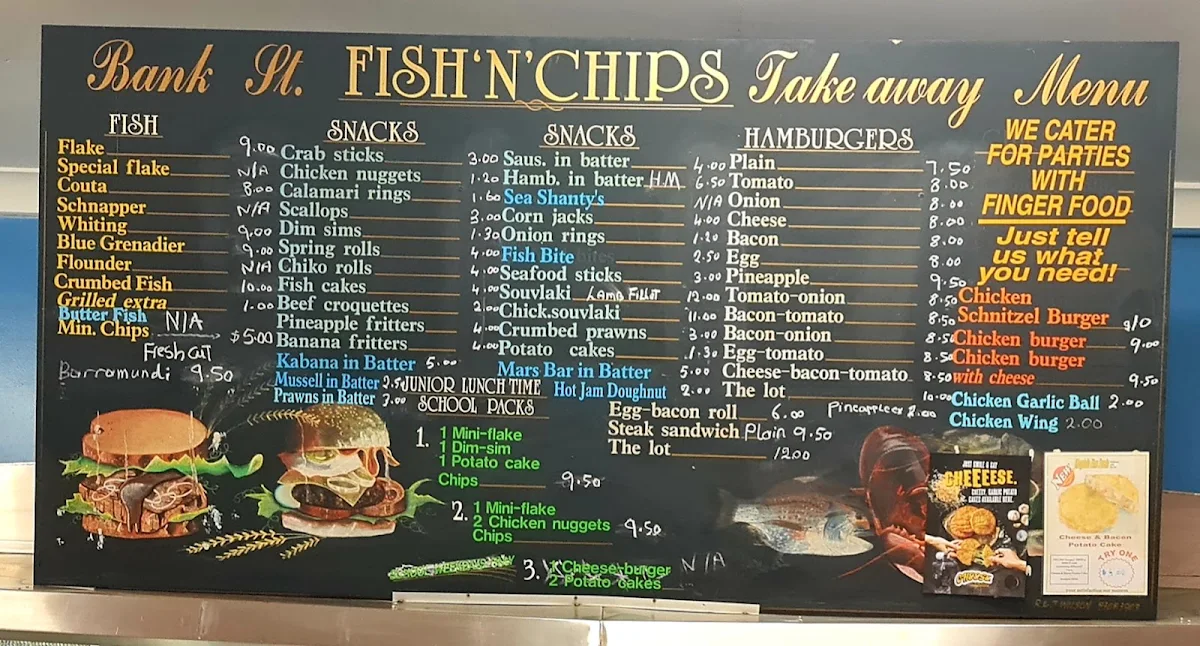 Bank St. FISH'N'CHIPS Take away Menu
FISH
Flake 9.00
Special flake N/A
Couta 8.00
Schnapper N/A
Whiting 9.00
Blue Grenadier 9.00
Flounder N/A
Crumbed Fish 10.00
Grilled extra 1.00
Butter Fish N/A
Min. Chips $5.00
Fresh cut
Barramundi 9.50
SNACKS
Crab sticks 3.00
Chicken nuggets 1.20
Calamari rings 1.60
Scallops 3.00
Dim sims 1.30
Spring rolls 4.00
Chiko rolls 4.00
Fish cakes 4.00
Beef croquettes 2.00
Pineapple fritters 4.00
Banana fritters 4.00
Kabana in Batter 5.00
Mussell in Batter 2.50
Prawns in Batter 3.00
SNACKS
Saus. in batter 4.00
Hamb. in batter H.M 6.50
Sea Shanty's N/A
Corn jacks 4.00
Onion rings 1.20
Fish Bite 2.50
Seafood sticks 3.00
Souvlaki Lamb Fillet 12.00
Chick.souvlaki 11.00
Crumbed prawns 3.00
Potato cakes 1.30
Mars Bar in Batter 5.00
Hot Jam Doughnut 2.00
JUNIOR LUNCH TIME
SCHOOL PACKS
1. 1 Mini-flake
1 Dim-sim
1 Potato cake
Chips 9.50
2. 1 Mini-flake
2 Chicken nuggets 9.50
Chips
3. 1 Cheese-burger N/A
2 Potato cakes
HAMBURGERS
Plain 7.50
Tomato 8.00
Onion 8.00
Cheese 8.00
Bacon 8.00
Egg 8.00
Pineapple 9.50
Tomato-onion 8.50
Bacon-tomato 8.50
Bacon-onion 8.50
Egg-tomato 8.50
Cheese-bacon-tomato 8.50
The lot 10.00
Egg-bacon roll 6.00
Steak sandwich Plain 9.50
The lot 12.00
WE CATER
FOR PARTIES
WITH
FINGER FOOD
Just tell
us what
you need!
Chicken
Schnitzel Burger $10
Chicken burger 9.00
Chicken burger
with cheese 9.50
Chicken Garlic Ball 2.00
Chicken Wing 2.00
JUST SMILE & SAY
CHEEEESE.
CHEESY, GARLIC POTATO
CAKES AVAILABLE HERE
New
Cheese & Bacon
Potato Cake
TRY ONE